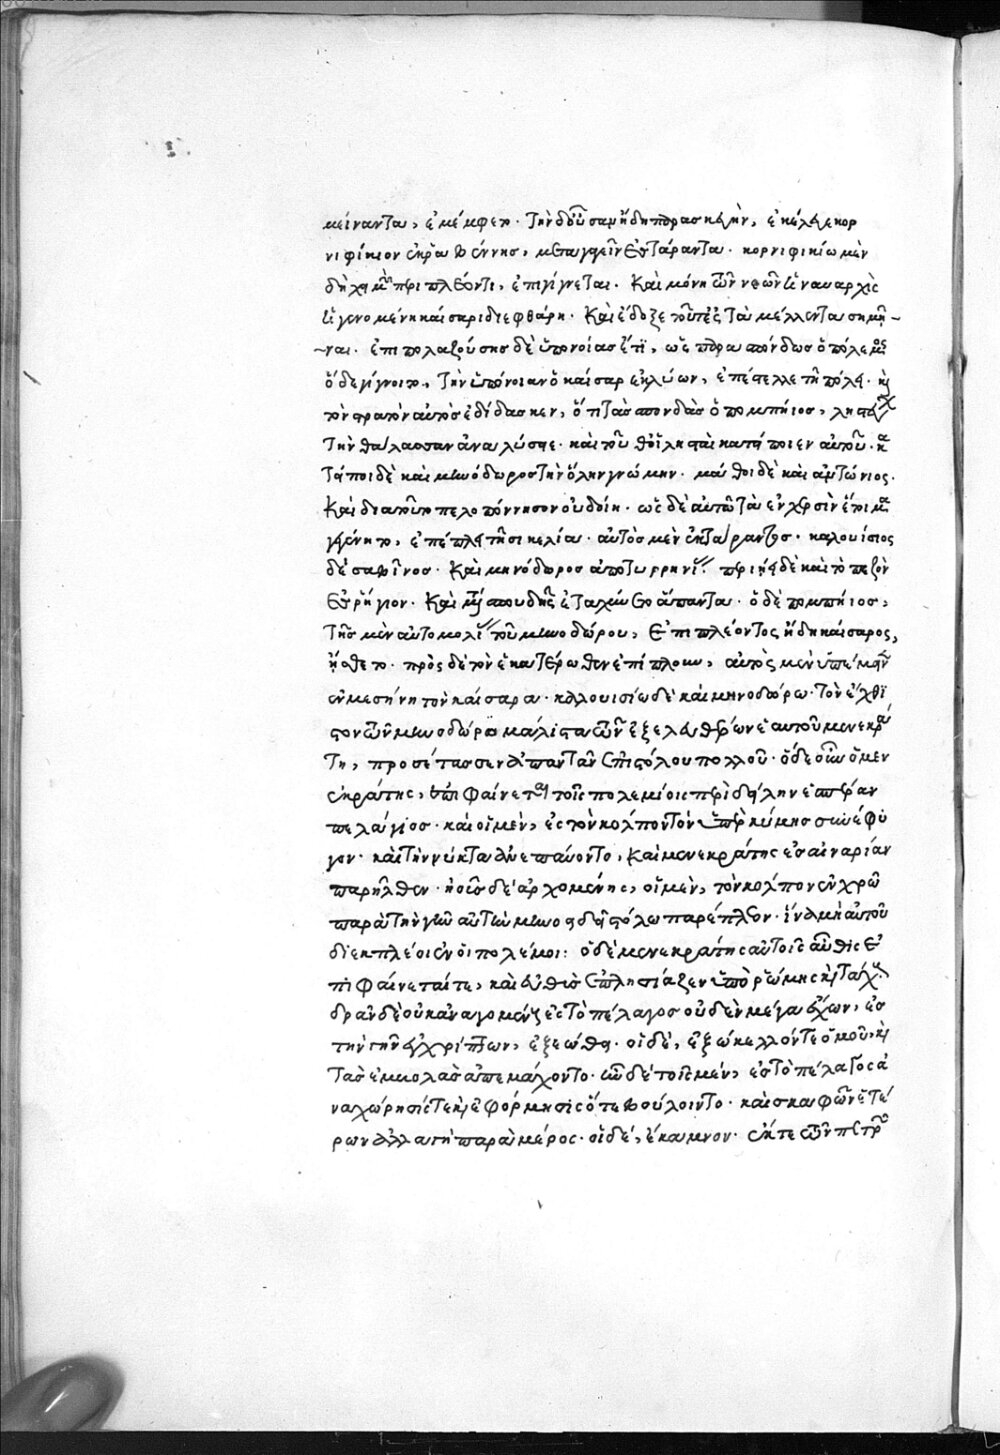 μείναντα, ἐμέμφετο· τὴν δ' οὖσαν ἤδη παρασκευὴν, ἐκέλευε κορ
νιφίκιον ἐκ ῥαβέννης, μεταγαγεῖν ἐς τάραντα· κορνιφικίω μὲν
δὴ χειμὼν περιπλέοντι, ἐπιγίγνεται. Καὶ μόνη τῶν νεῶν ἡ ναυαρχὶς
ἡ γενομένη καίσαρι διεφθάρη. Καὶ ἔδοξε τοῦτ' ἐς τὰ μέλλοντα σημῆ
ναι· ἐπιπολαζούσης δὲ ὑπονοίας ἔτι, ὡς παρασπόνδως ὁ πόλεμος
ὅδε γίγνοιτο, τὴν ὑπόνοιαν ὁ καίσαρ ἐκλύων, ἐπέστελλε τῇ πόλει. καὶ
τὸν στρατὸν αὐτὸς ἐδίδασκεν, ὅτι τὰς σπονδὰς ὁ πομπήιος, ληστεύων
τὴν θάλασσαν ἀναλύσειε· καὶ τοῦθ' οἱ λησταὶ κατείποιεν αὐτοῦ· κα
τείποι δὲ καὶ μηνόδωρος τὴν ὅλην γνώμην· μάθοι δὲ καὶ ἀντώνιος.
Καὶ διὰ τοῦτο πελοπόννησον οὐ δοίη· ὡς δὲ αὐτῶ τὰ ἐν χερσὶν ἕτοιμα
γεγένητο, ἐπέπλει τῇ σικελία· αὐτὸς μὲν ἐκ τάραντος· καλουίσιος
δὲ σαβῖνος· Καὶ μηνόδωρος ἀπὸ τυρρηνίας· περιῄει δὲ καὶ τὸ πεζὸν
ἐς ῥήγιον. Καὶ μετὰ σπουδῆς ἐταχύνετο ἅπαντα· ὁ δὲ πομπήιος,
τῆς μὲν αὐτομολίας τοῦ μηνοδώρου, ἐπιπλέοντος ἤδη καίσαρος,
ἤσθετο· πρὸς δὲ τὸν ἑκατέρωθεν ἐπίπλουν, αὐτὸς μὲν ὑπέμενεν
ἐν μεσήνη τὸν καίσαρα· καλουισίω δὲ καὶ μηνοδώρω· τὸν ἔχθι
στον τῶν μηνοδώρω μάλιστα τῶν ἐξελευθέρων ἑαυτοῦ μενεκρά
τη, προσέτασσεν ἀπαντᾶν ἐπὶ στόλου πολλοῦ· ὅδε οὖν ὁ μεν
εκράτης, ἐπιφαίνεται τοῖς πολεμίοις περὶ δείλην ἑσπέραν
πελάγιος· καὶ οἱ μὲν, ἐς τὸν κόλπον τὸν ὑπὲρ κύμης συνέφυ
γον· καὶ τὴν νύκτα ἀνεπαύοντο, καὶ μενεκράτης ἐς αἰναρίαν
παρῆλθεν· ἠοῦς δὲ ἀρχομένης, οἱ μὲν, τὸν κόλπον ἐν χρῶ
παρὰ τὴν γῆν αὐτὴν μηνοειδεῖ στόλω παρέπλεον· ἵνα μὴ αὐτοὺ
διεκπλέοιεν οἱ πολέμιοι· ὁ δὲ μενεκράτης αὐτοῖς αὖθις ἐ
πιφαίνεταί τε, καὶ εὐθὺς ἐπλησίαζεν ὑπὸ ῥώμης καὶ τάχους
δρᾶν δὲ οὐκ ἀναγομένους ἐς τὸ πέλαγος οὐδὲν μέγα ἔχων, ἐς
τὴν γῆν ἐγχρίπτων, ἐξεώθει· οἱ δὲ, ἐξώκελλόν τε ὁμοῦ. καὶ
τὰς ἐμβολὰς ἀπεμάχοντο· ἦν δὲ τοῖς μὲν, ἐς τὸ πέλαγος ἀ
ναχώρησίς τε καὶ ἐφόρμησις ὅτε βούλοιντο· καὶ σκαφῶν ἑτέ
ρων ἀλλαγὴ παρὰ μέρος· οἱ δὲ, ἔκαμνον· ἔκ τε τῶν πετρῶν